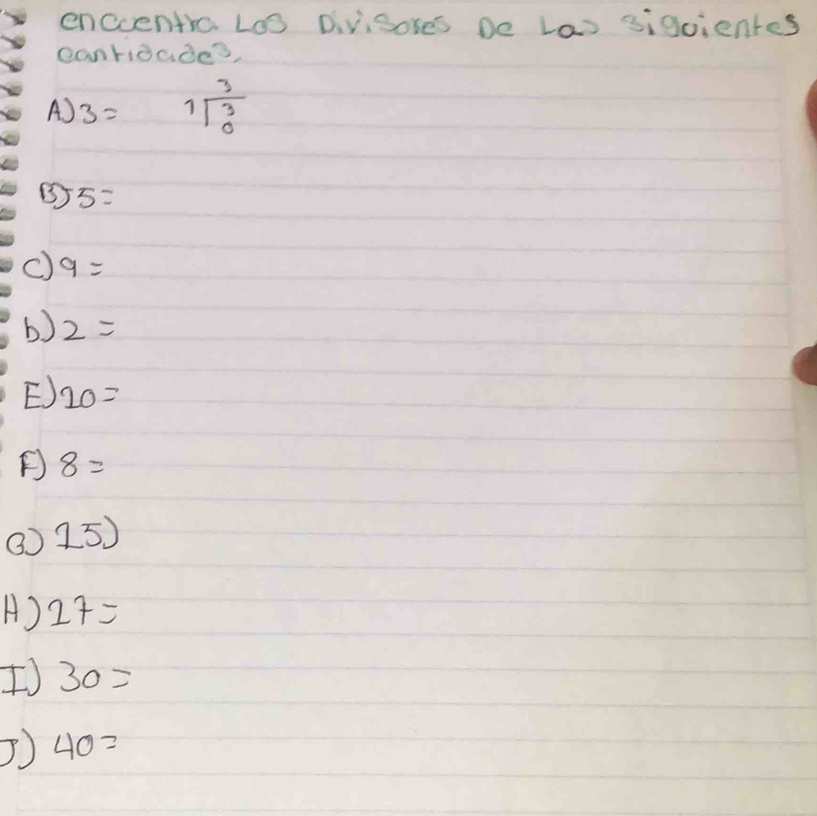 encuentra Los Divisores De Las siguientes
cantidades.
A) 3 = 1 3 3 0
B) 5 =
C) 9 =
D) 2 =
E) 10 =
F) 8 =
G) 15)
H) 27 =
I) 30 =
J) 40 =